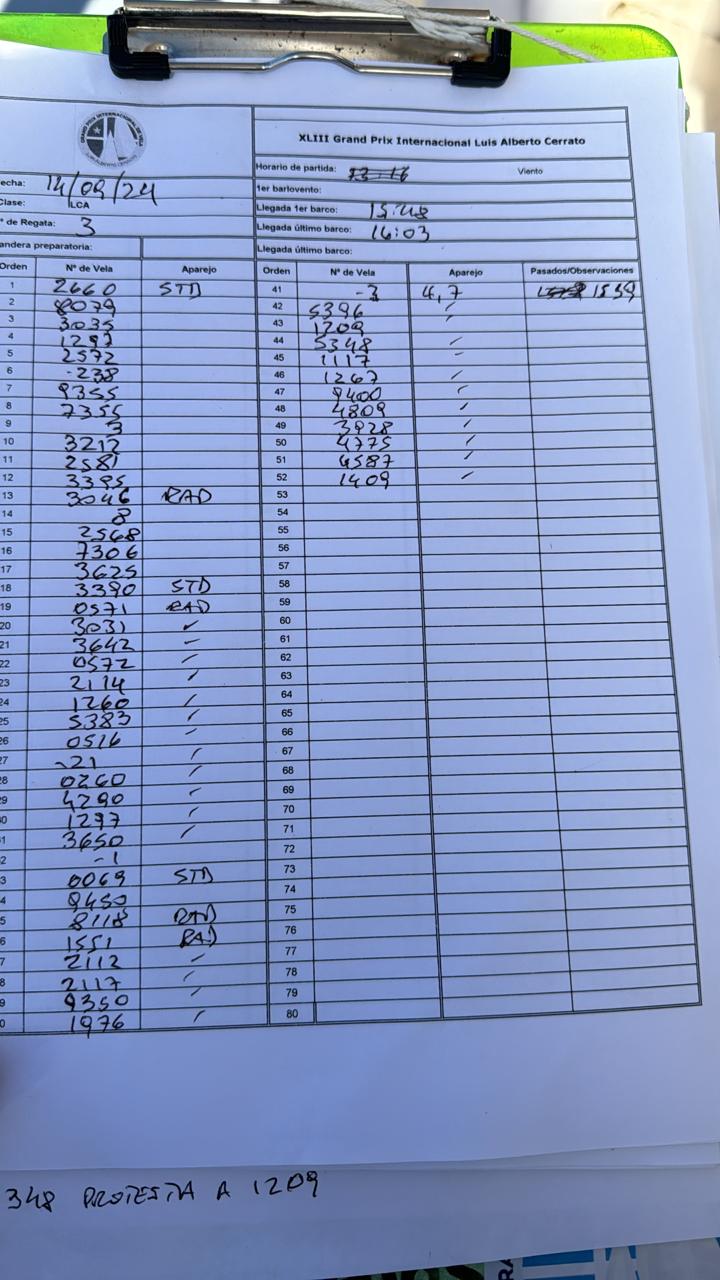 GRAND PRIX INTERNACIONAL
XLIII Grand Prix Internacional Luis Alberto Cerrato
Horario de partida: 13:16 Viento
echa: 14/09/24
1er barlovento:
Clase: ILCA
Llegada 1er barco: 15:48
° de Regata: 3
Llegada último barco: 16:03
andera preparatoria:
Llegada último barco:
Orden N° de Vela Aparejo
1 2660 STD
2 8079
3 3035
4 1297
5 2572
6 -238
7 9355
8 7355
9 3
10 3212
11 2581
12 3395
13 3046 RAD
14 8
15 2568
16 7306
17 3625
18 3390 STD
19 0571 RAD
20 3031 ✓
21 3642 -
22 0572 ✓
23 2114 ✓
24 1260 ✓
25 5383 ✓
26 0516 -
27 -21 ✓
28 0260 ✓
29 4290 ✓
30 1297 ✓
31 3650 ✓
2 -1
3 0069 STD
4 9450
5 8118 RAD
6 1551 RAD
7 2112 -
8 2117 ✓
9 9350 ✓
0 1976 ✓
Orden N° de Vela Aparejo Pasados/Observaciones
41 -3 4,7 1559
42 5396 ✓
43 1209 ✓
44 5348 ✓
45 1117 -
46 1267 ✓
47 9400 ✓
48 4809 ✓
49 3928 ✓
50 4775 ✓
51 4587 ✓
52 1409 ✓
53
54
55
56
57
58
59
60
61
62
63
64
65
66
67
68
69
70
71
72
73
74
75
76
77
78
79
80
348 PROTESTA A 1209